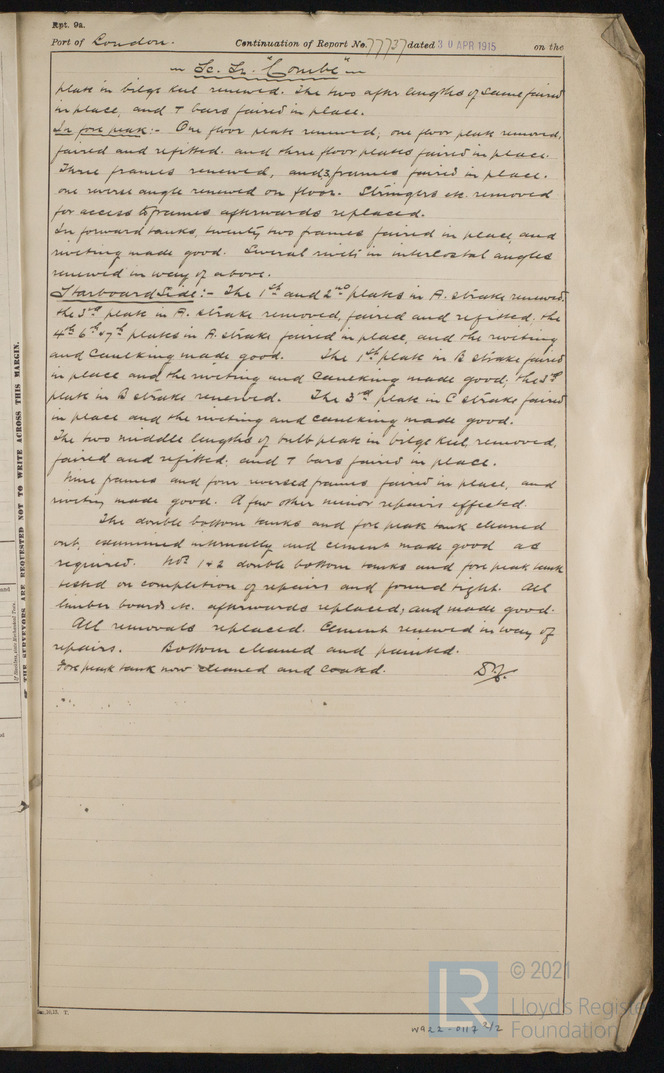 Rpt. 9a.
Port of London. Continuation of Report No. 77737 dated 30 APR 1915 on the
Sc. Sr. "Combe"
plate in bilge keel renewed. The two after lengths of same faired
in place, and T bars faired in place.
In fore peak:- One floor plate renewed, one floor plate removed,
faired and refitted. and three floor plates faired in place.
Three frames renewed, and 3 frames faired in place.
one reverse angle renewed on floor. Stringers etc. removed
for access to frames afterwards replaced.
In forward tanks, twenty two frames faired in place, and
riveting made good. Several rivets in intercostal angles
renewed in way of above.
Starboard Side:- The 1st and 2nd plates in A. strake renewed.
the 3rd plate in A. strake removed, faired and refitted, the
4th 6th & 7th plates in A strake faired in place, and the riveting
and caulking made good. The 1st plate in B strake faired
in place and the riveting and caulking made good; the 3rd
plate in B strake renewed. The 3rd plate in C strake faired
in place and the riveting and caulking made good.
The two middle lengths of bulb plate in bilge keel, removed,
faired and refitted. and T bars faired in place.
Nine frames and four reversed frames faired in place, and
riveting made good. A few other minor repairs effected.
The double bottom tanks and fore peak tank cleaned
out, examined internally and cement made good as
required. Nos 1 & 2 double bottom tanks and fore peak tank
tested on completion of repairs and found tight. All
limber boards etc. afterwards replaced, and made good.
All removals replaced. Cement renewed in way of
repairs. Bottom cleaned and painted.
Fore peak tank now cleaned and coated.
THE SURVEYORS ARE REQUESTED NOT TO WRITE ACROSS THIS MARGIN.
LR
© 2021
Lloyd's Register
Foundation
W922-0117 2/2